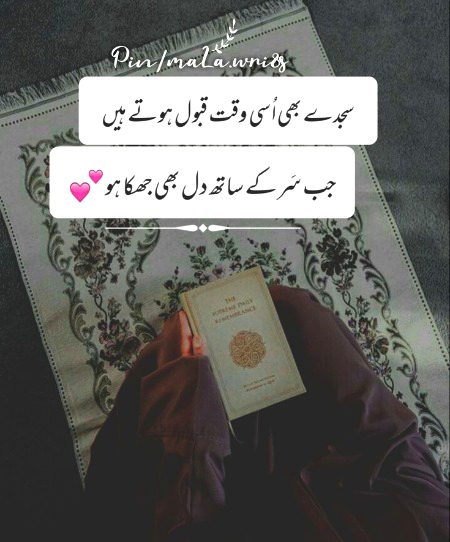 Pin/maLa.wni8s
سجدے بھی اُسی وقت قبول ہوتے ہیں
جب سَر کے ساتھ دل بھی جھکا ہو💕
THE
SUPREME DAILY
REMEMBRANCE